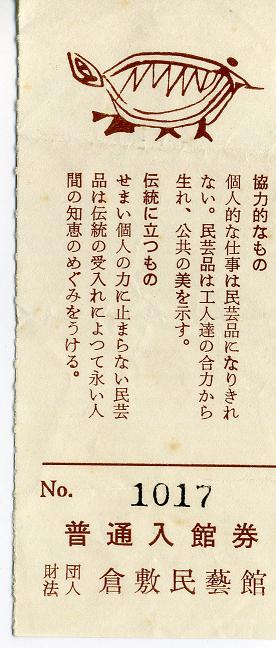 協力的なもの
個人的な仕事は民芸品になりきれ
ない。民芸品は工人達の合力から
生れ、公共の美を示す。
伝統に立つもの
せまい個人の力に止まらない民芸
品は伝統の受入れによつて永い人
間の知恵のめぐみをうける。
No. 1017
普通入館券
財団法人 倉敷民藝館